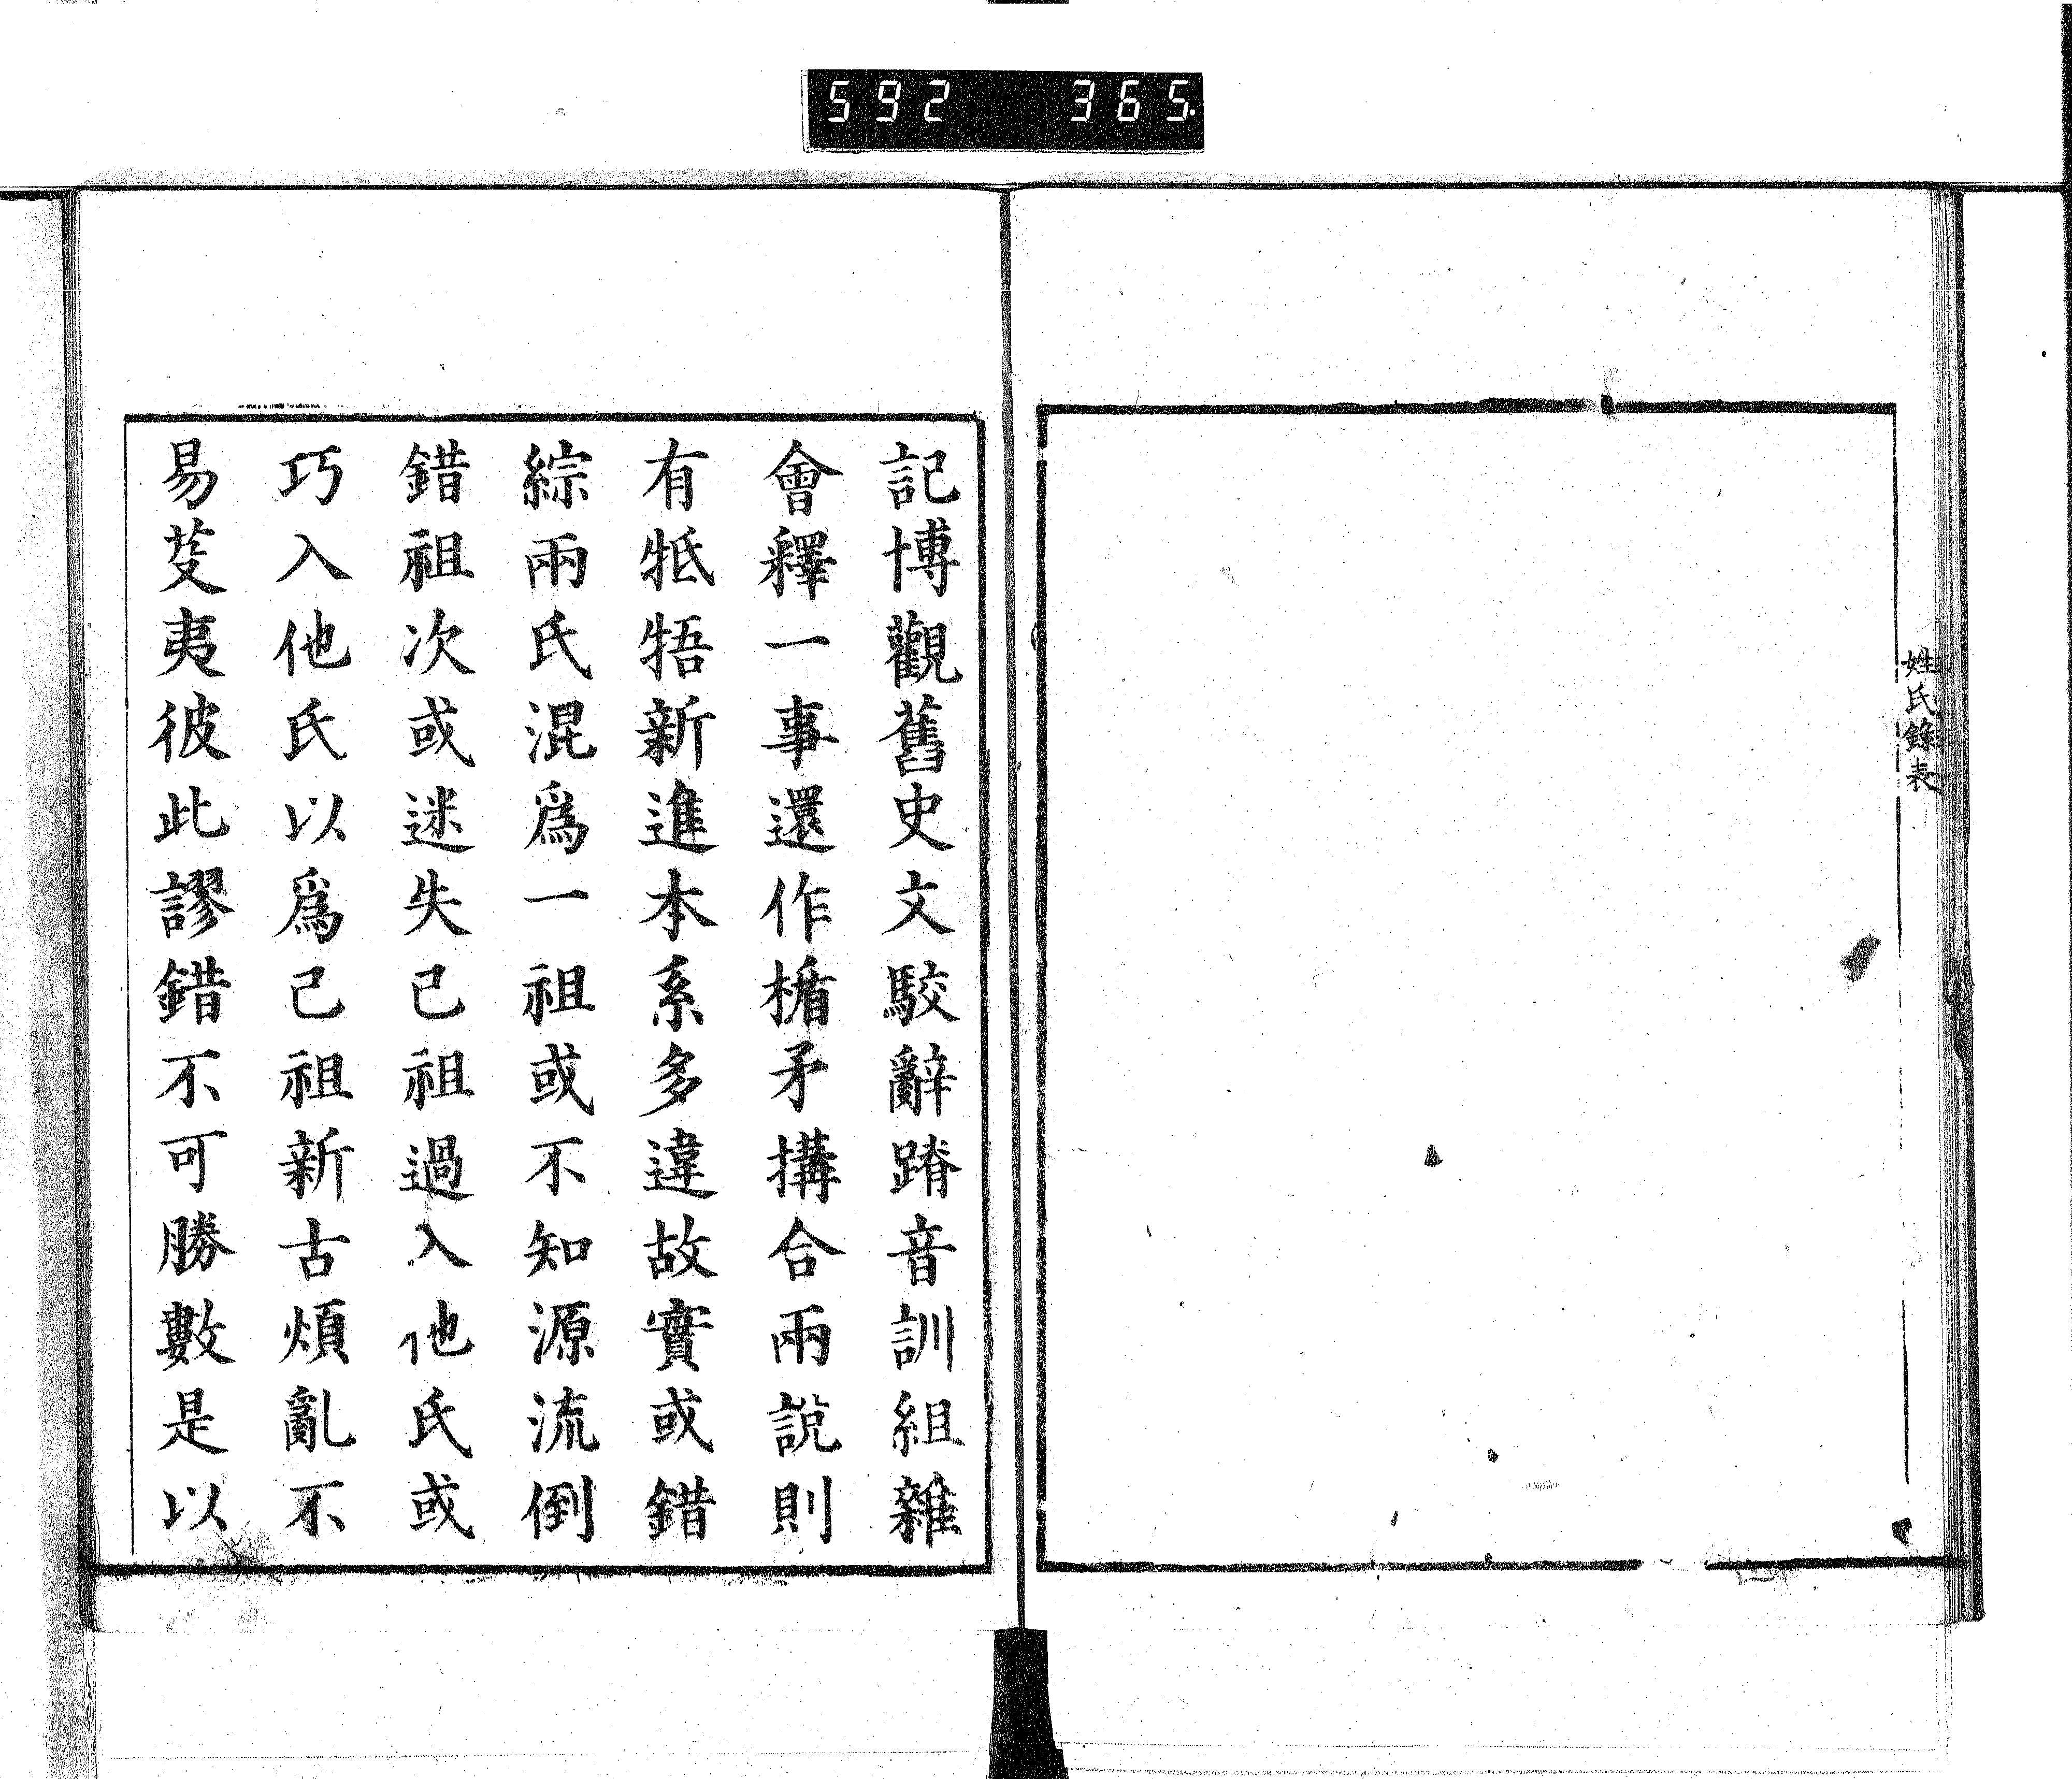 592 365.
姓氏錄表
記博觀舊史文駮辭蹐音訓組雜
會釋一事還作楯矛搆合兩説則
有牴牾新進本系多違故實或錯
綜兩氏混爲一祖或不知源流倒
錯祖次或迷失己祖過入他氏或
巧入他氏以爲己祖新古煩亂不
易芟夷彼此謬錯不可勝數是以